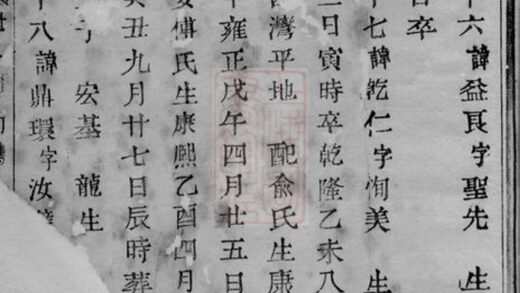 十六諱益良字聖先 生
日卒
十七諱乾仁字洵美 生
日寅時卒乾隆乙未八
灣平地 配俞氏生康
年雍正戊午四月廿五日
傅氏生康熙乙酉四月
癸丑九月廿七日辰時葬
子 宏基 龍生
十八諱鼎環字汝